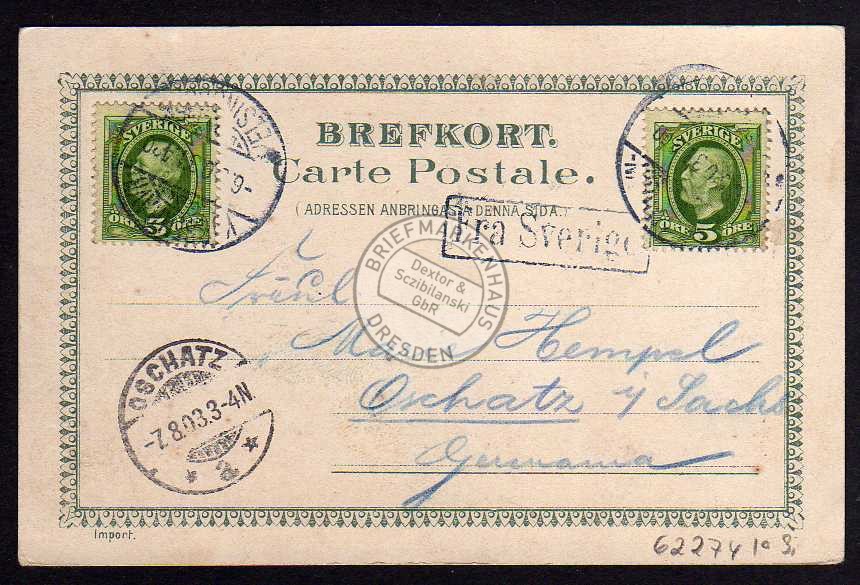 SVERIGE
5
ÖRE ÖRE
SVERIGE
ÖRE 5 ÖRE
BREFKORT.
Carte Postale.
(ADRESSEN ANBRINGAS Å DENNA SIDA.)
Fra Sverige
BRIEFMARKENHAUS
Dextor &
Sczibilanski
GbR
DRESDEN
Fräul
Hempel
Oschatz i/ Sachs
Germania
OSCHATZ
-7.8.03.3-4N
* a *
Import.
62274